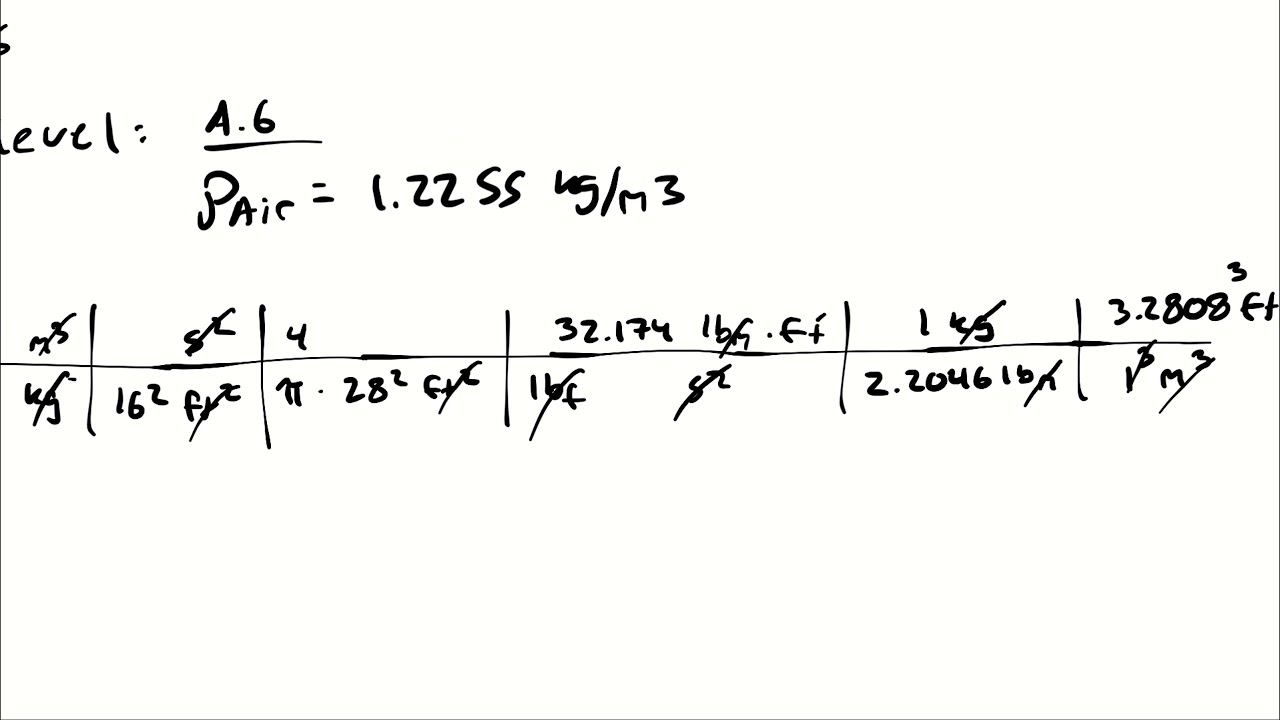 level: A.6
ρAir = 1.2255 kg/m3
m3 s2 4 32.174 lbm . ft 1 kg 3.2808 3 ft
kg 16 2 ft2 π . 28 2 ft2 lbf s2 2.2046 lbm 1 3 m3